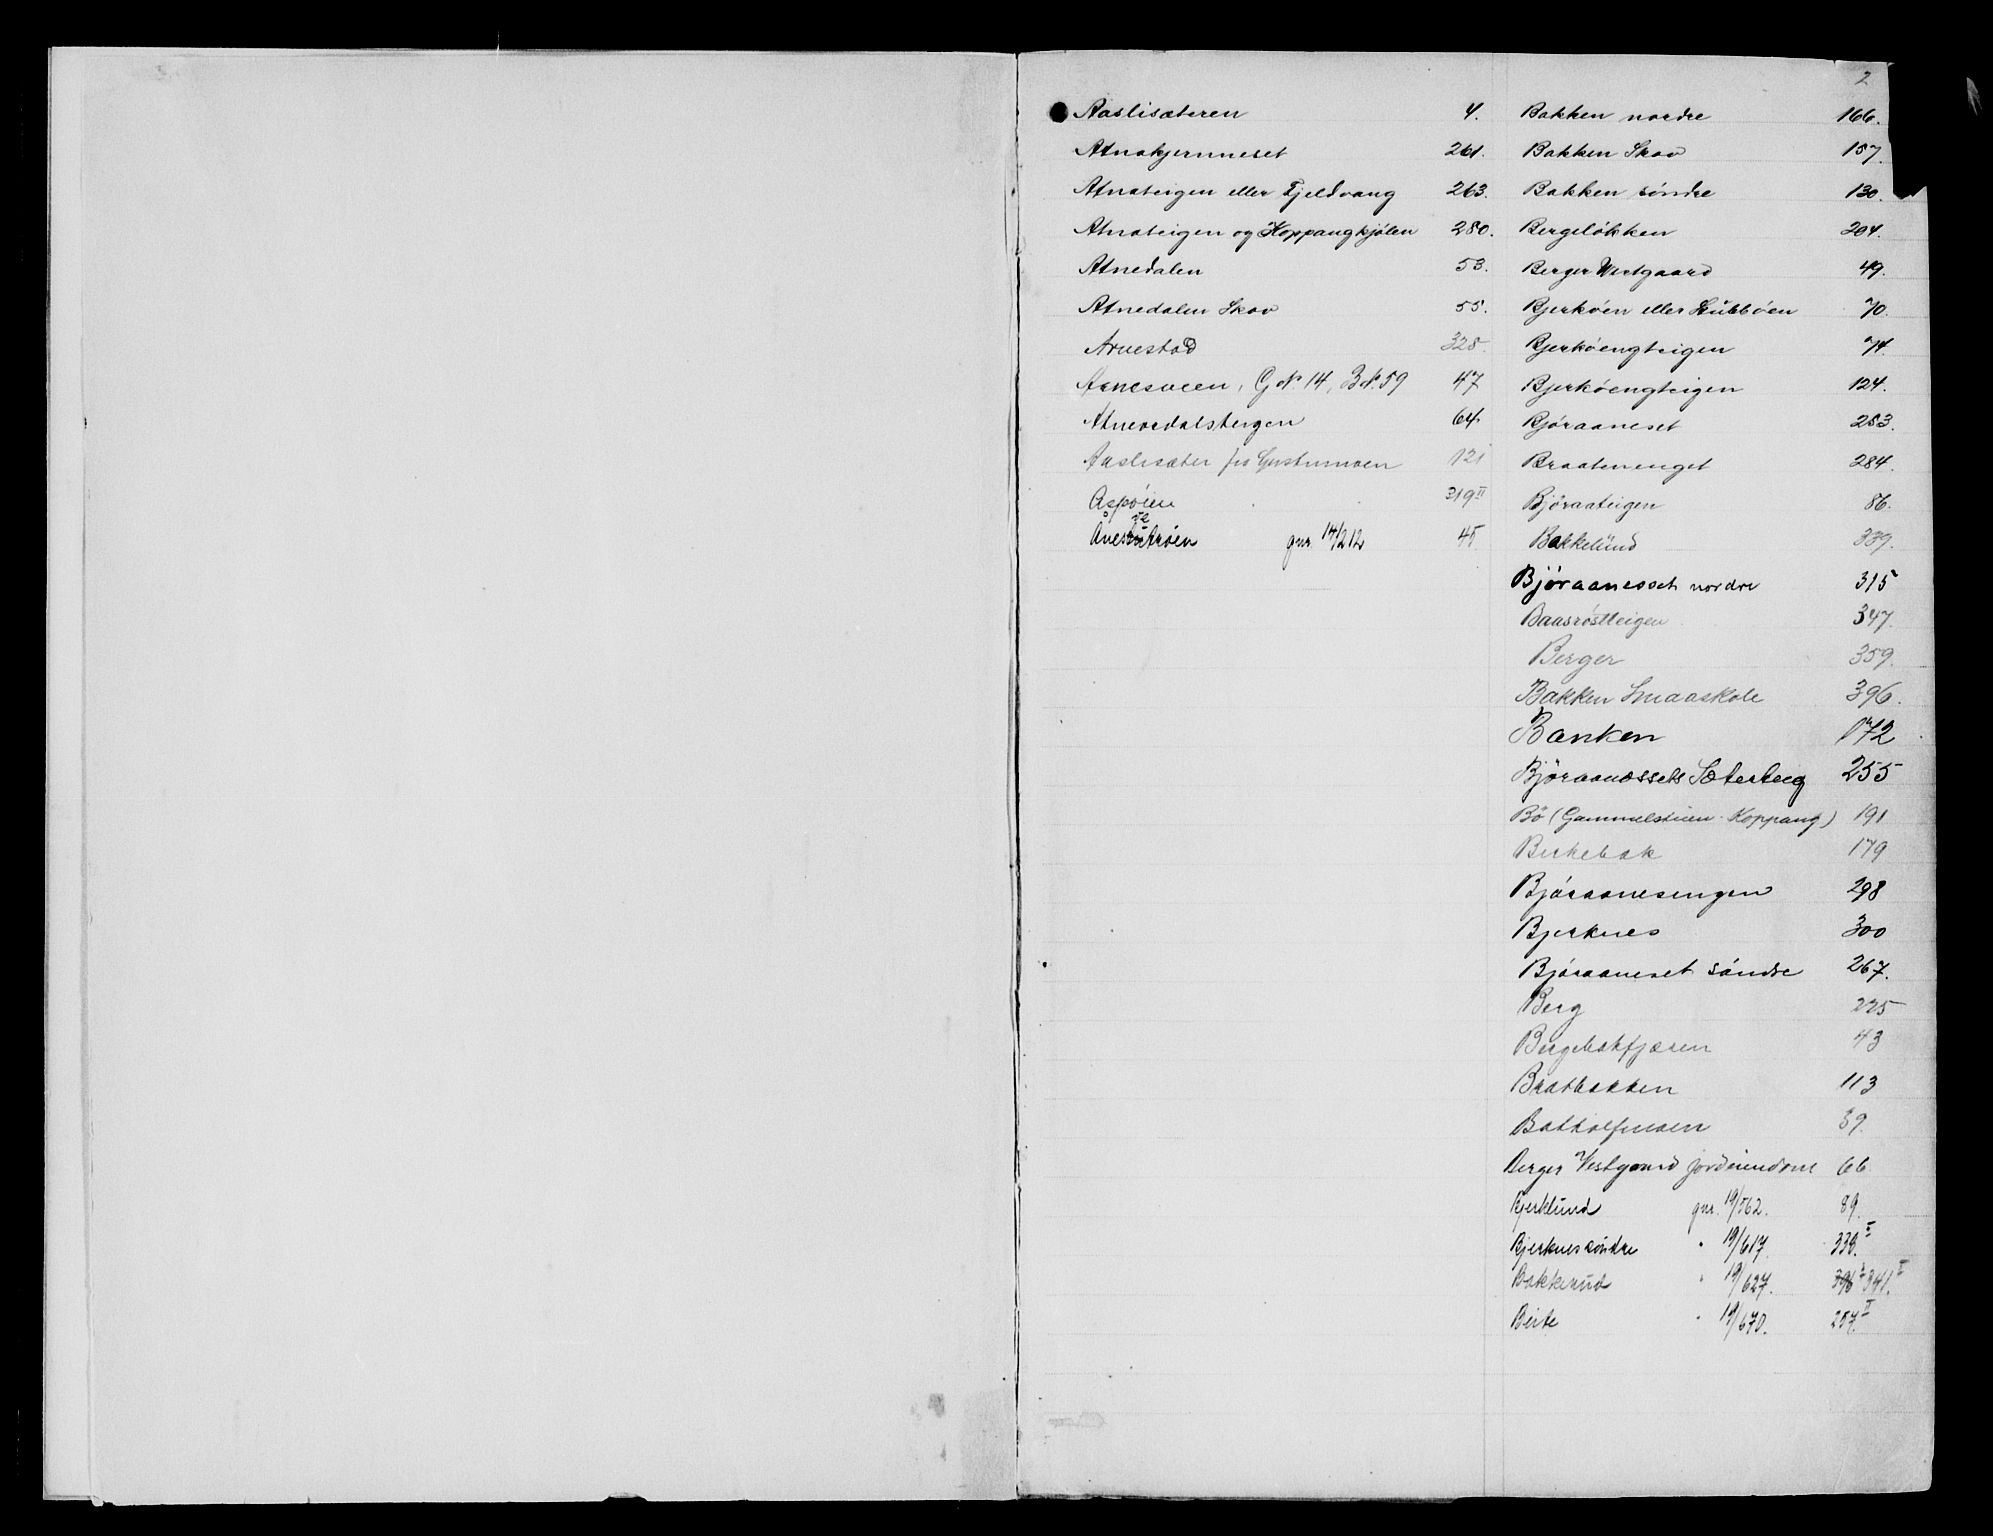 2
Aaslisæteren 4.
Atnakjernneset 261.
Atnateigen eller Fjeldvang 263.
Atnateigen og Koppangkjølen 280.
Atnedalen 53.
Atnedalen Skov 55.
Arnestad 328.
Arnesveen, G.No. 14, B.No. 59 47
64
Aaslisæter fra 121
Aspöien 319 II
gnr. 14/212 45
Bakken nordre 166.
Bakken Skov 157.
Bakken söndre 130.
Bergelökken 204.
Berger Vestgaard 49.
Bjerköen eller Stubböen 70.
Bjerköengteigen 74.
Bjerköengteigen 124.
Björaaneset 283.
Braatenenget 284.
Björaateigen 86.
Bakkelund 339.
Björaanesset nordre 315
Baasröstteigen 347.
Berger 359.
Bakken Smaaskole 396.
Banken 172
Björaanæssets Sæterteig 255
Bö (Gammelstuen Koppang) 191
Birkebak 179
Björaanesengen 298
Bjerknes 300
Björaaneset söndre 267.
Berg 225
Bergebakfjæren 43
Bratbakken 113
39.
Berger Vestgaard jordeiendom 66
Bjerklund gnr. 19/562. 89.
Bjerknes söndre " 19/617. 338. I
Bakkerud " 19/627. 396 I 341. I
Beite " 19/670. 257. II